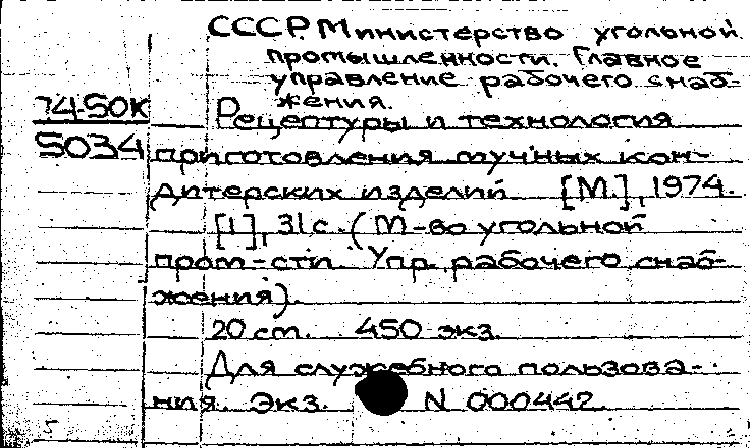 СССР. Министерство угольной
промышленности. Главное
управление рабочего снаб-
жения.
74-50К
5034
Рецептуры и технология
приготовления мучных кон-
дитерских изделий. [М.], 1974.
[1], 31 с. (М-во угольной
пром-сти. Упр. рабочего снаб-
жения).
20 см. 450 экз.
Для служебного пользова-
ния. Экз. N 000442.
5